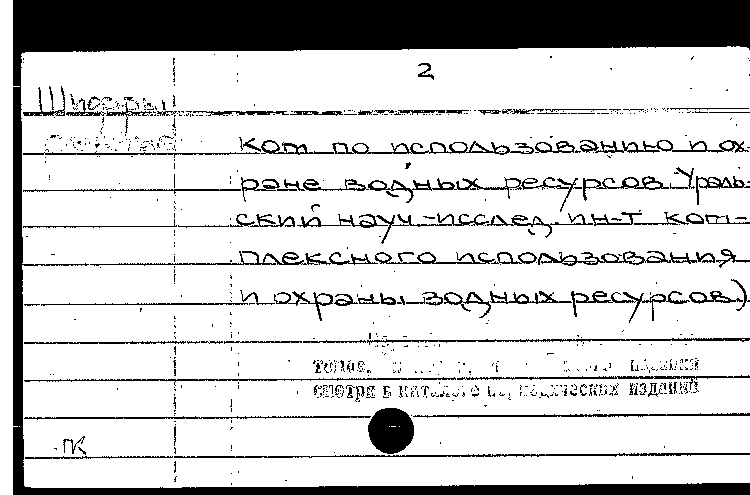 2
Шифры
ком по использованию и ох
ране водных ресурсов. Ураль-
ский науч.-исслед. ин-т ком-
плексного использования
и охраны водных ресурсов)
издания
смотри в каталоге периодических изданий
ПК